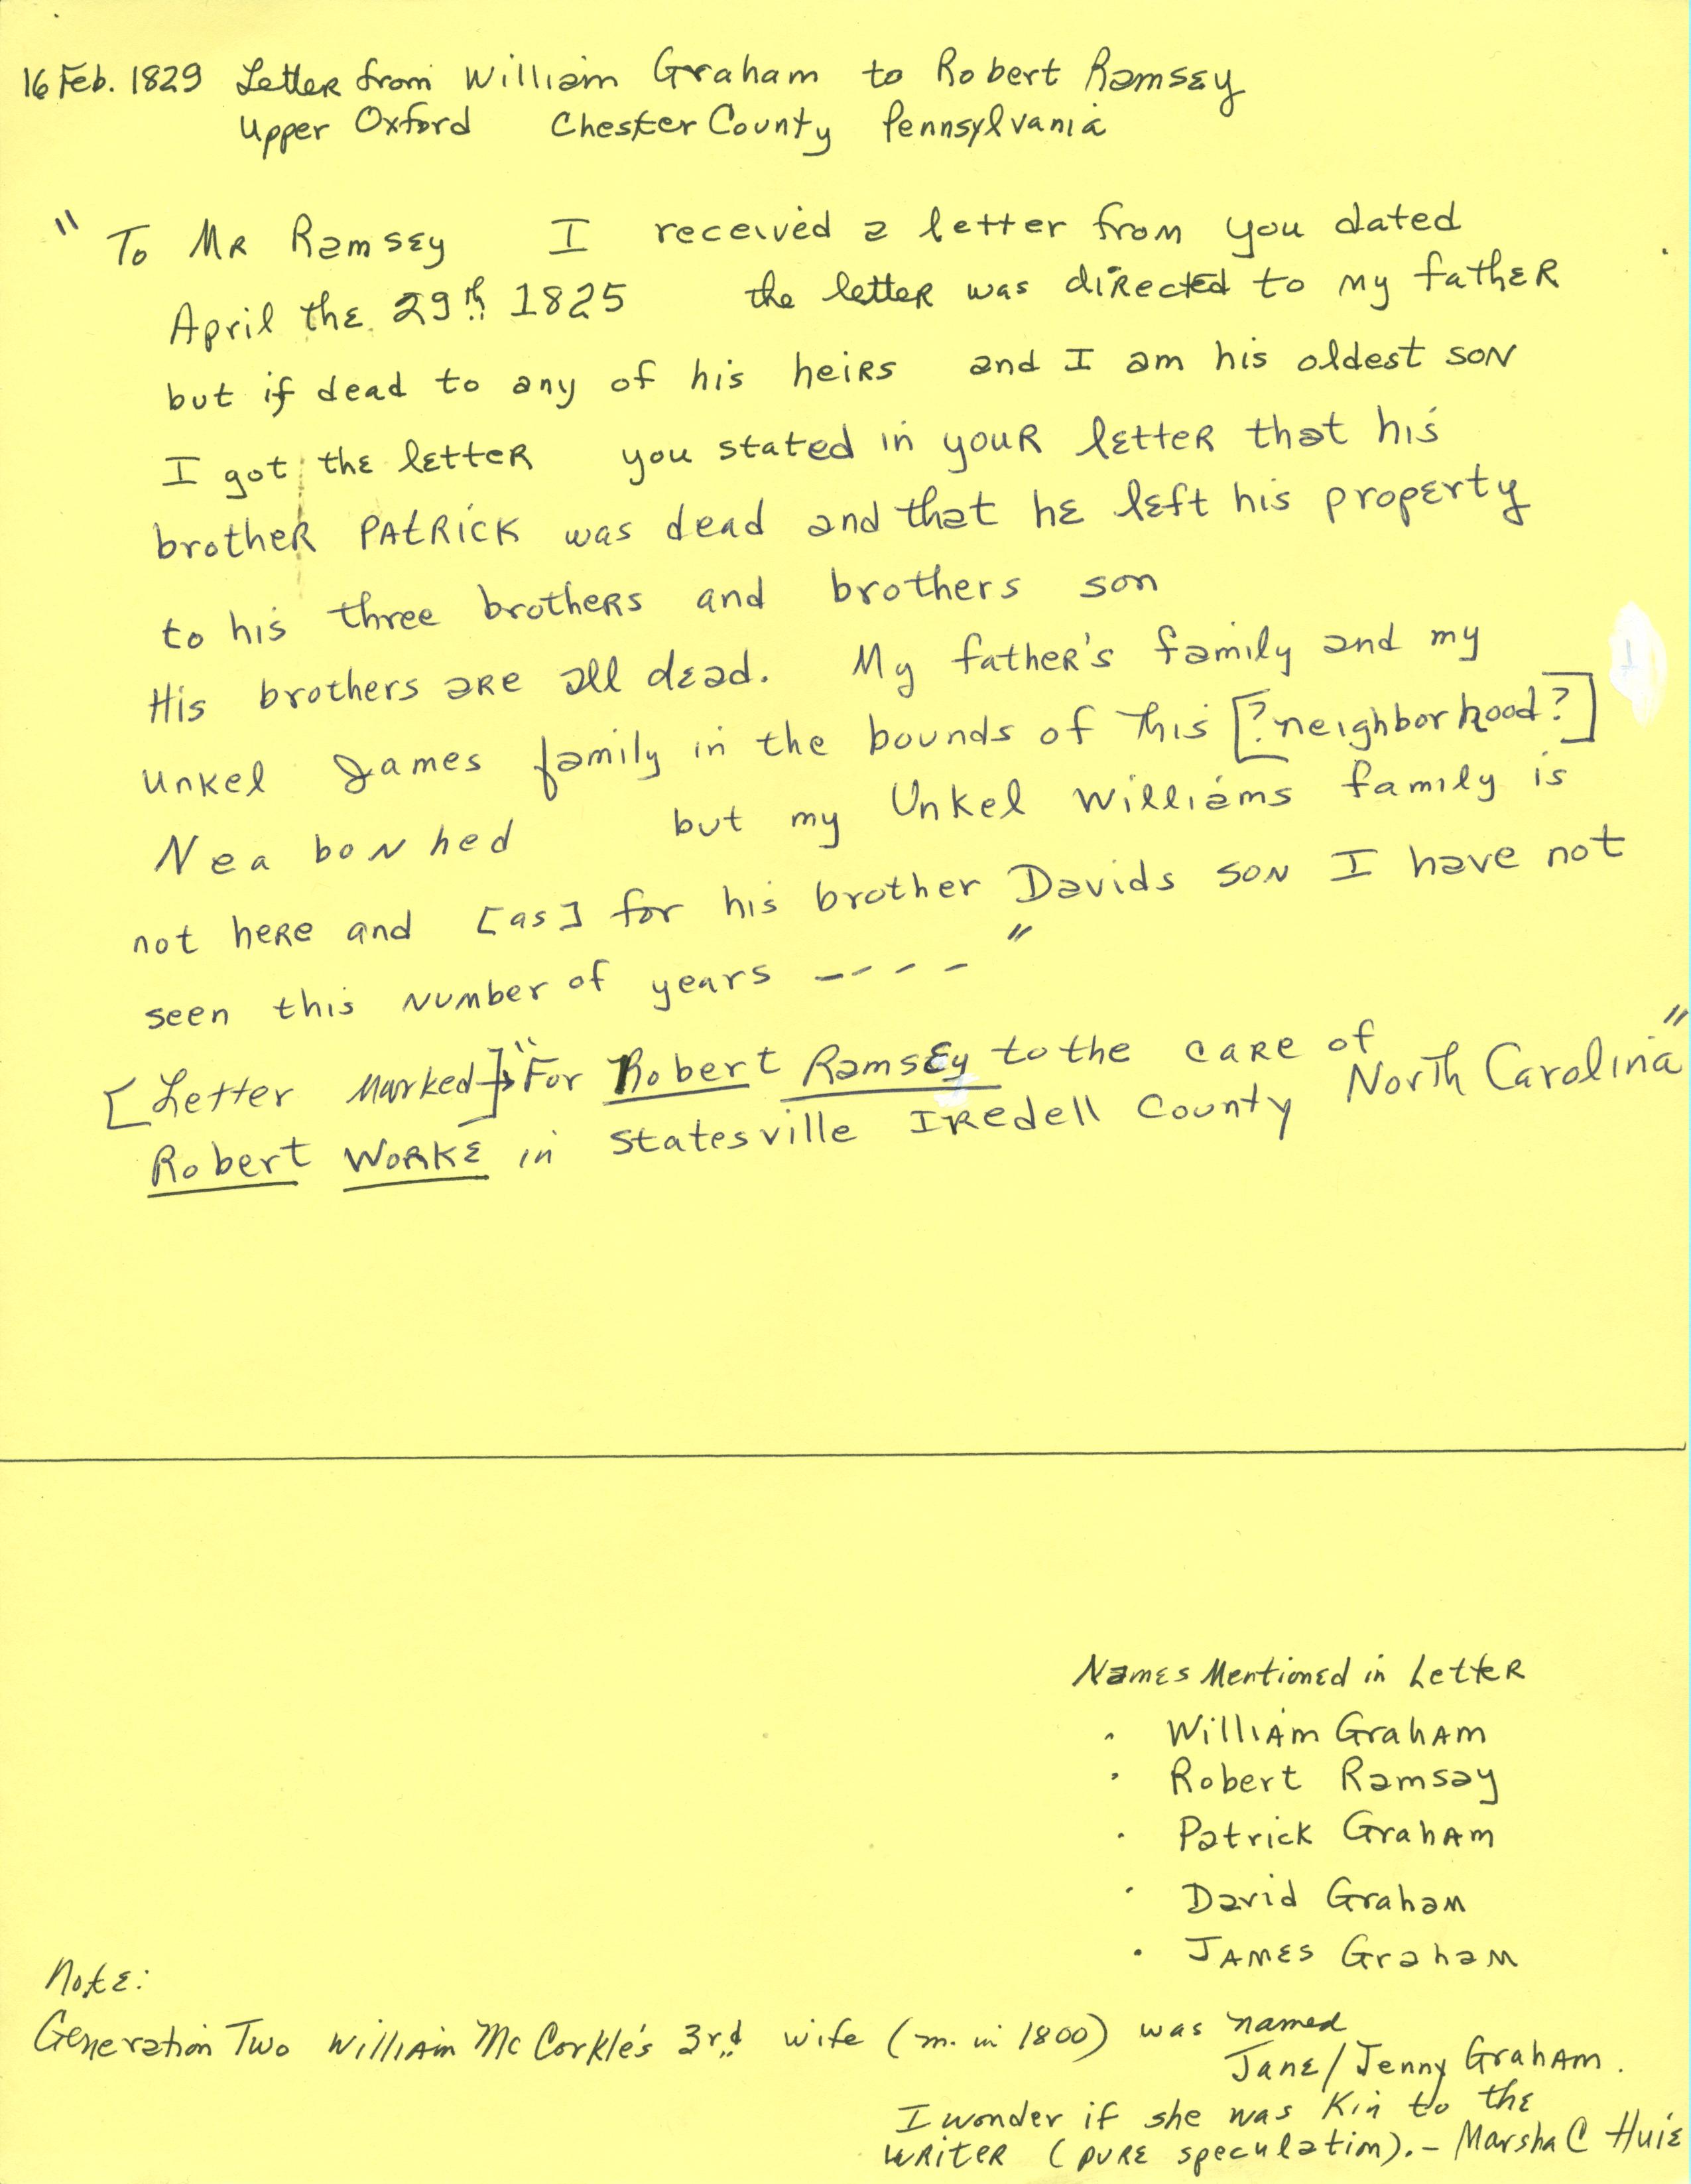 16 Feb. 1829 Letter from William Graham to Robert Ramsey
Upper Oxford Chester County Pennsylvania
" To Mr Ramsey I received a letter from you dated
April the 29th 1825 the letter was directed to my father
but if dead to any of his heirs and I am his oldest son
I got the letter you stated in your letter that his
brother Patrick was dead and that he left his property
to his three brothers and brothers son
His brothers are all dead. My father's family and my
unkel James family in the bounds of this [?neighborhood?]
Neabonhed but my Unkel Williams family is
not here and [as] for his brother Davids son I have not
seen this number of years ---- "
[Letter Marked] "For Robert Ramsey to the care of
Robert Worke in Statesville Iredell County North Carolina"
Names Mentioned in Letter
· William Graham
· Robert Ramsay
· Patrick Graham
· David Graham
· James Graham
Note:
Generation Two William McCorkle's 3rd wife (m. in 1800) was named
Jane/Jenny Graham.
I wonder if she was kin to the
writer (pure speculation). - Marsha C Huie